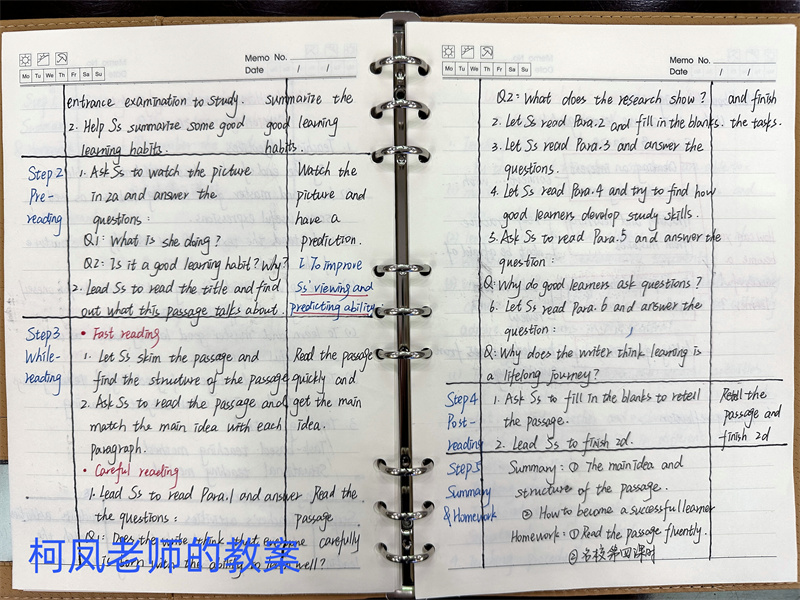 Memo No.
Mo Tu We Th Fr Sa Su
Date / /
entrance examination to study. summarize the
2. Help Ss summarize some good good learning
learning habits. habits.
Step 2 1. Ask Ss to watch the picture Watch the
Pre- in 2a and answer the picture and
reading questions: have a
Q1: What is she doing? prediction.
Q2: Is it a good learning habit? Why? I: To improve
2. Lead Ss to read the title and find Ss' viewing and
out what this passage talks about. predicting ability.
Step 3 • Fast reading
While- 1. Let Ss skim the passage and Read the passage
reading find the structure of the passage quickly and
2. Ask Ss to read the passage and get the main
match the main idea with each idea.
paragraph.
• Careful reading
1. Lead Ss to read Para.1 and answer Read the
the questions: passage
Q1: Does the write think that everyone carefully
is born with the ability to learn well?
柯凤老师的教案
Memo No.
Mo Tu We Th Fr Sa Su
Date / /
Q2: What does the research show? and finish
2. Let Ss read Para.2 and fill in the blanks. the tasks.
3. Let Ss read Para.3 and answer the
questions.
4. Let Ss read Para.4 and try to find how
good learners develop study skills.
5. Ask Ss to read Para.5 and answer the
question:
Q: Why do good learners ask questions?
6. Let Ss read Para.6 and answer the
question:
Q: Why does the writer think learning is
a lifelong journey?
Step 4 1. Ask Ss to fill in the blanks to retell Retell the
Post- the passage. passage and
reading 2. Lead Ss to finish 2d. finish 2d
Step 5 Summary: ① The main idea and
Summary structure of the passage.
& Homework ② How to become a successful learner
Homework: ① Read the passage fluently.
② 名校第四课时